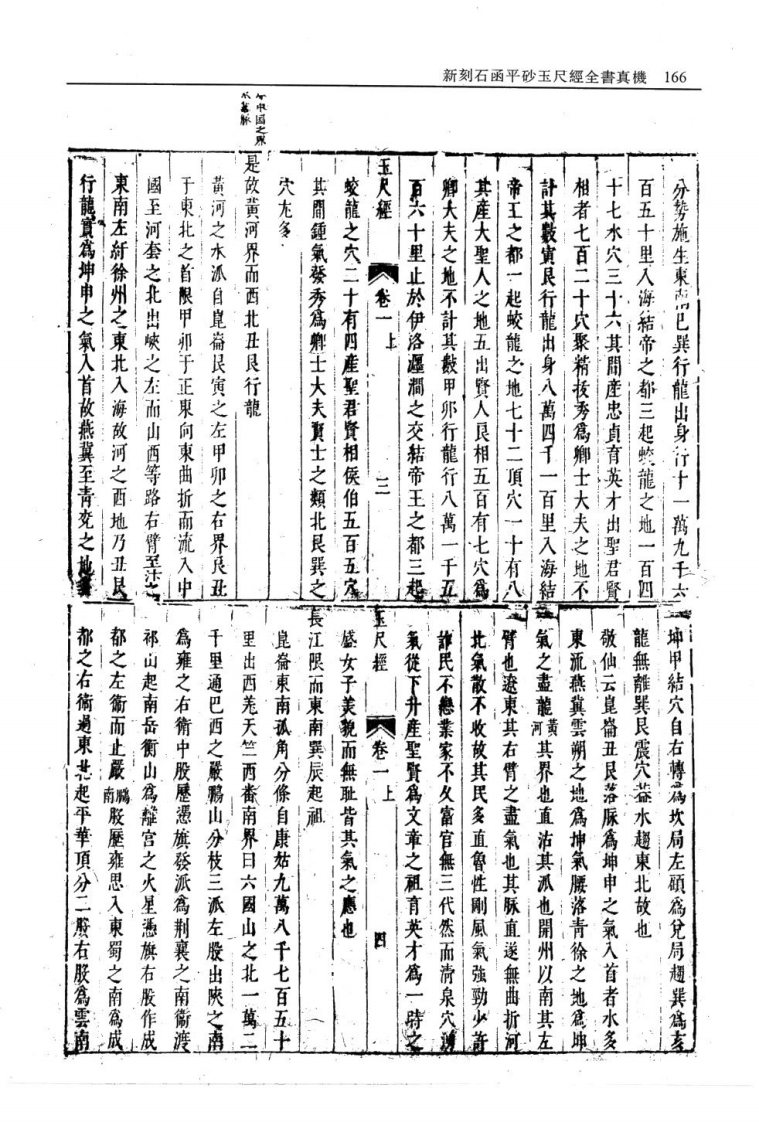 新刻石函平砂玉尺經全書真機 166
分勢施生東南巳巽行龍出身行十一萬九千六
百五十里入海結帝之都三起蛟龍之地一百四
十七水穴三十六其間產忠貞育英才出聖君賢
相者七百二十穴聚精拔秀為卿士大夫之地不
計其數寅艮行龍出身八萬四千一百里入海結
帝王之都一起蛟龍之地七十二頂穴一十有八
其產大聖人之地五出賢人良相五百有七穴為
卿大夫之地不計其數甲卯行龍行八萬一千五
百六十里止於伊洛瀍澗之交結帝王之都三起
玉尺經 卷一上 三
蛟龍之穴二十有四產聖君賢相侯伯五百五穴
其間鍾氣發秀為卿士大夫賢士之類北艮巽之
穴尢多
是故黃河界而西北丑艮行龍
中國之界
黃河之水派自崑崙艮寅之左甲卯之右界艮丑
于東北之首限甲卯于正東向東曲折而流入中
國至河套之北出峽之左而山西等路右臂至汴之
東南左紆徐州之東北入海故河之西地乃丑艮
行龍實為坤申之氣入首故燕冀至青兗之地
坤甲結穴自右轉為坎局左顧為兌局趨巽為亥
龍無離巽艮震穴益水趨東北故也
敬仙云崑崙丑艮落脉為坤申之氣入首者水多
東流燕冀雲朔之地為坤氣腰落青徐之地為坤
氣之盡龍黃河其界也直沽其派也開州以南其左
臂也遼東其右臂之盡氣也其脉直遂無曲折河
北氣散不收故其民多直魯性剛風氣強勁少許
詐民不戀業家不久富官無三代然而清泉穴湧
氣從下升產聖賢為文章之祖育英才為一時之
玉尺經 卷一上 四
盛女子美貌而無耻皆其氣之應也
長江限而東南巽辰起祖
崑崙東南孤角分條自康姑九萬八千七百五十
里出西羌天竺西番南界曰六國山之北一萬二
千里通巴西之嚴鵰山分枝三派左股出陜之南
為雍之右衛中股歷憑旗發派為荊襄之南衛渡
祁山起南岳衡山為離宮之火星憑旗右股作成
都之左衛而止嚴鵰南股歷雍思入東蜀之南為成
都之右衛過東北起平華頂分二股右股為雲南